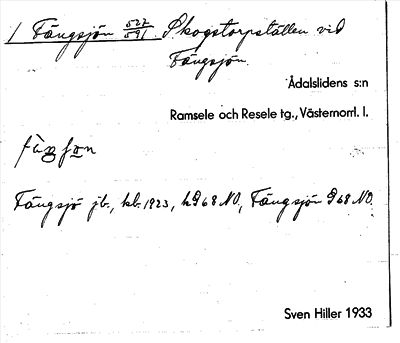 1 Tängsjön 527/591. Skogstorpställen vid
Tängsjön.
Ådalslidens s:n
Ramsele och Resele tg., Västernorrl. l.
Tängsjö jb., kb. 1923, k968NO, Tängsjön 968 NO.
Sven Hiller 1933